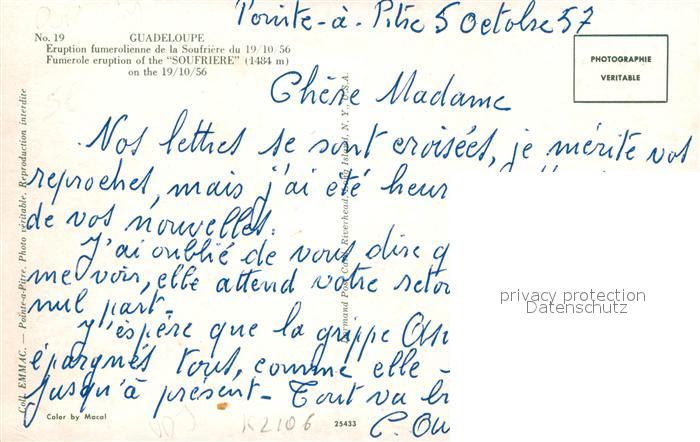 Pointe-à-Pitre 5 Octobre 57
No. 19 GUADELOUPE
Eruption fumerolienne de la Soufrière du 19/10/56
Fumerole eruption of the "SOUFRIERE" (1484 m)
on the 19/10/56
PHOTOGRAPHIE
VERITABLE
Chère Madame
Nos lettres se sont croisées, je mérite vos
reproches, mais j'ai été heur
de vos nouvelles.
J'ai oublié de vous dire q
me voir, elle attend votre retou
nul part.
J'espère que la grippe Asi
épargnés tous, comme elle -
jusqu'à présent - Tout va b
C. Ou
Coll. EMMAC. — Pointe-a-Pitre. Photo véritable. Reproduction interdite
Post Card, Riverhead, Long Island, N. Y., U.S.A.
privacy protection
Datenschutz
Color by Macol
K2106
25433